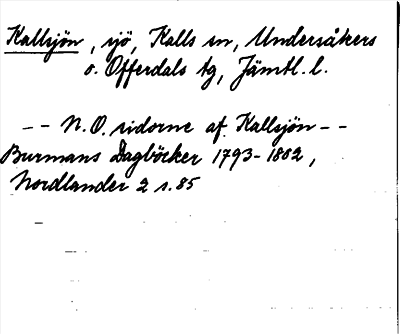 Kallsjön, sjö, Kalls sn, Undersåkers
o. Offerdals tg, Jämtl. l.
-- N.O. sidorne af Kallsjön --
Burmans Dagböcker 1793-1802,
Nordlander 2 s. 85